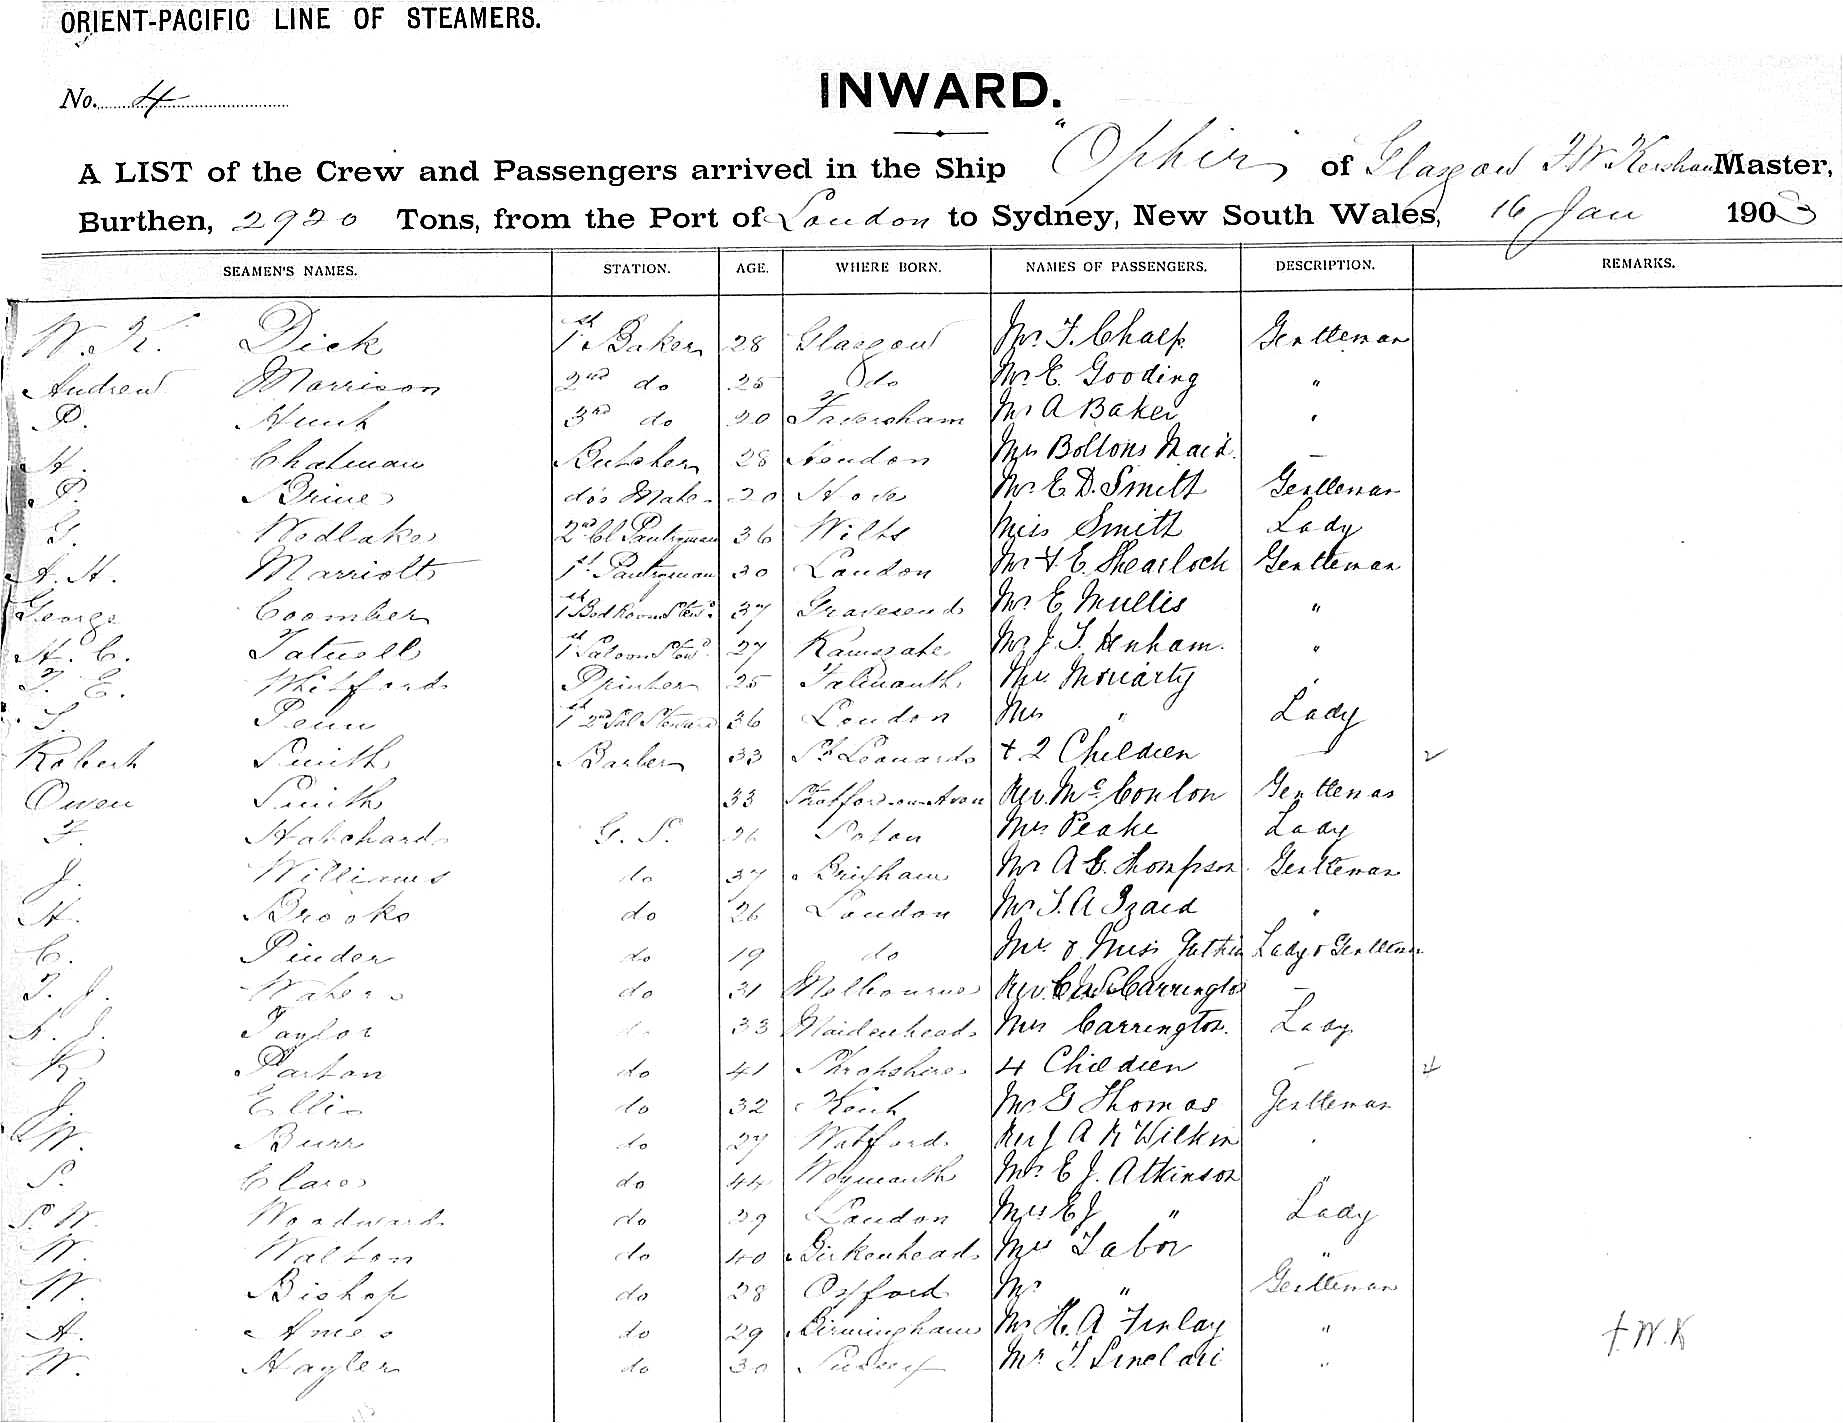 ORIENT-PACIFIC LINE OF STEAMERS.
No. 4
INWARD.
A LIST of the Crew and Passengers arrived in the Ship "Ophir of Glasgow Master,
Burthen, 2920 Tons, from the Port of London to Sydney, New South Wales, 16 Jan 1903
SEAMEN'S NAMES. STATION. AGE. WHERE BORN. NAMES OF PASSENGERS. DESCRIPTION. REMARKS.
W. K. Dick 1st Baker 28 Glasgow Mr. Gentleman
Andrew Morrison 2nd do 25 do Mr E. Gooding "
P. 3rd do 20 Faversham Mr A Baker "
H. Chatman Butcher 28 Hendon Mrs Boltons Maid. —
P. Brine do's Mate 20 Hove Mr. E. D. Smith Gentleman
G. Wedlake 2nd Cl Pantryman 36 Wilts Miss Smith Lady
A. H. Marriott 1st Pantryman 30 London Mr Shearlock Gentleman
George Coomber 1st Bedroom Stewd. 37 Gravesend Mr. E. Mullis "
H. C. Tatnell 1st Saloon Stewd. 27 Ramsgate Mr J. T. Henham. "
T. E. Whitford Printer 25 Falmouth Moriarty "
Penn 36 London Mrs " Lady
Robert Smith Barber 33 St Leonards + 2 Children —
Owen Smith 33 Stratford-on-Avon Rev. Mc Conlon Gentleman
F. Habchard G. S. 26 Soton Mrs Peake Lady
J. Williams do 37 Brixham Mr A G. Thompson Gentleman
H. Brooks do 26 London Mr T. A Izard "
C. Pinder do 19 do Mr & Miss Lady & Gentleman
T. J. Waters do 31 Melbourne Rev. Carrington —
Taylor do 33 Maidenhead Mrs Carrington. Lady
R. Parton do 41 Shropshire 4 Children —
J. Ellis do 32 Kent Mr G Thomas Gentleman
W. Burr do 27 Watford Rev J A R Wilkin "
S. Clare do 44 Weymouth Mr. E J. Atkinson "
S. W. Woodward do 39 London Mrs E J " Lady
W. Walton do 40 Birkenhead Mrs Tabor "
W. Bishop do 28 Oxford Mr " Gentleman
A. Ames do 29 Birmingham Mr H. A Finlay "
W. Hayler do 30 Sussex Mr T. Sinclair "